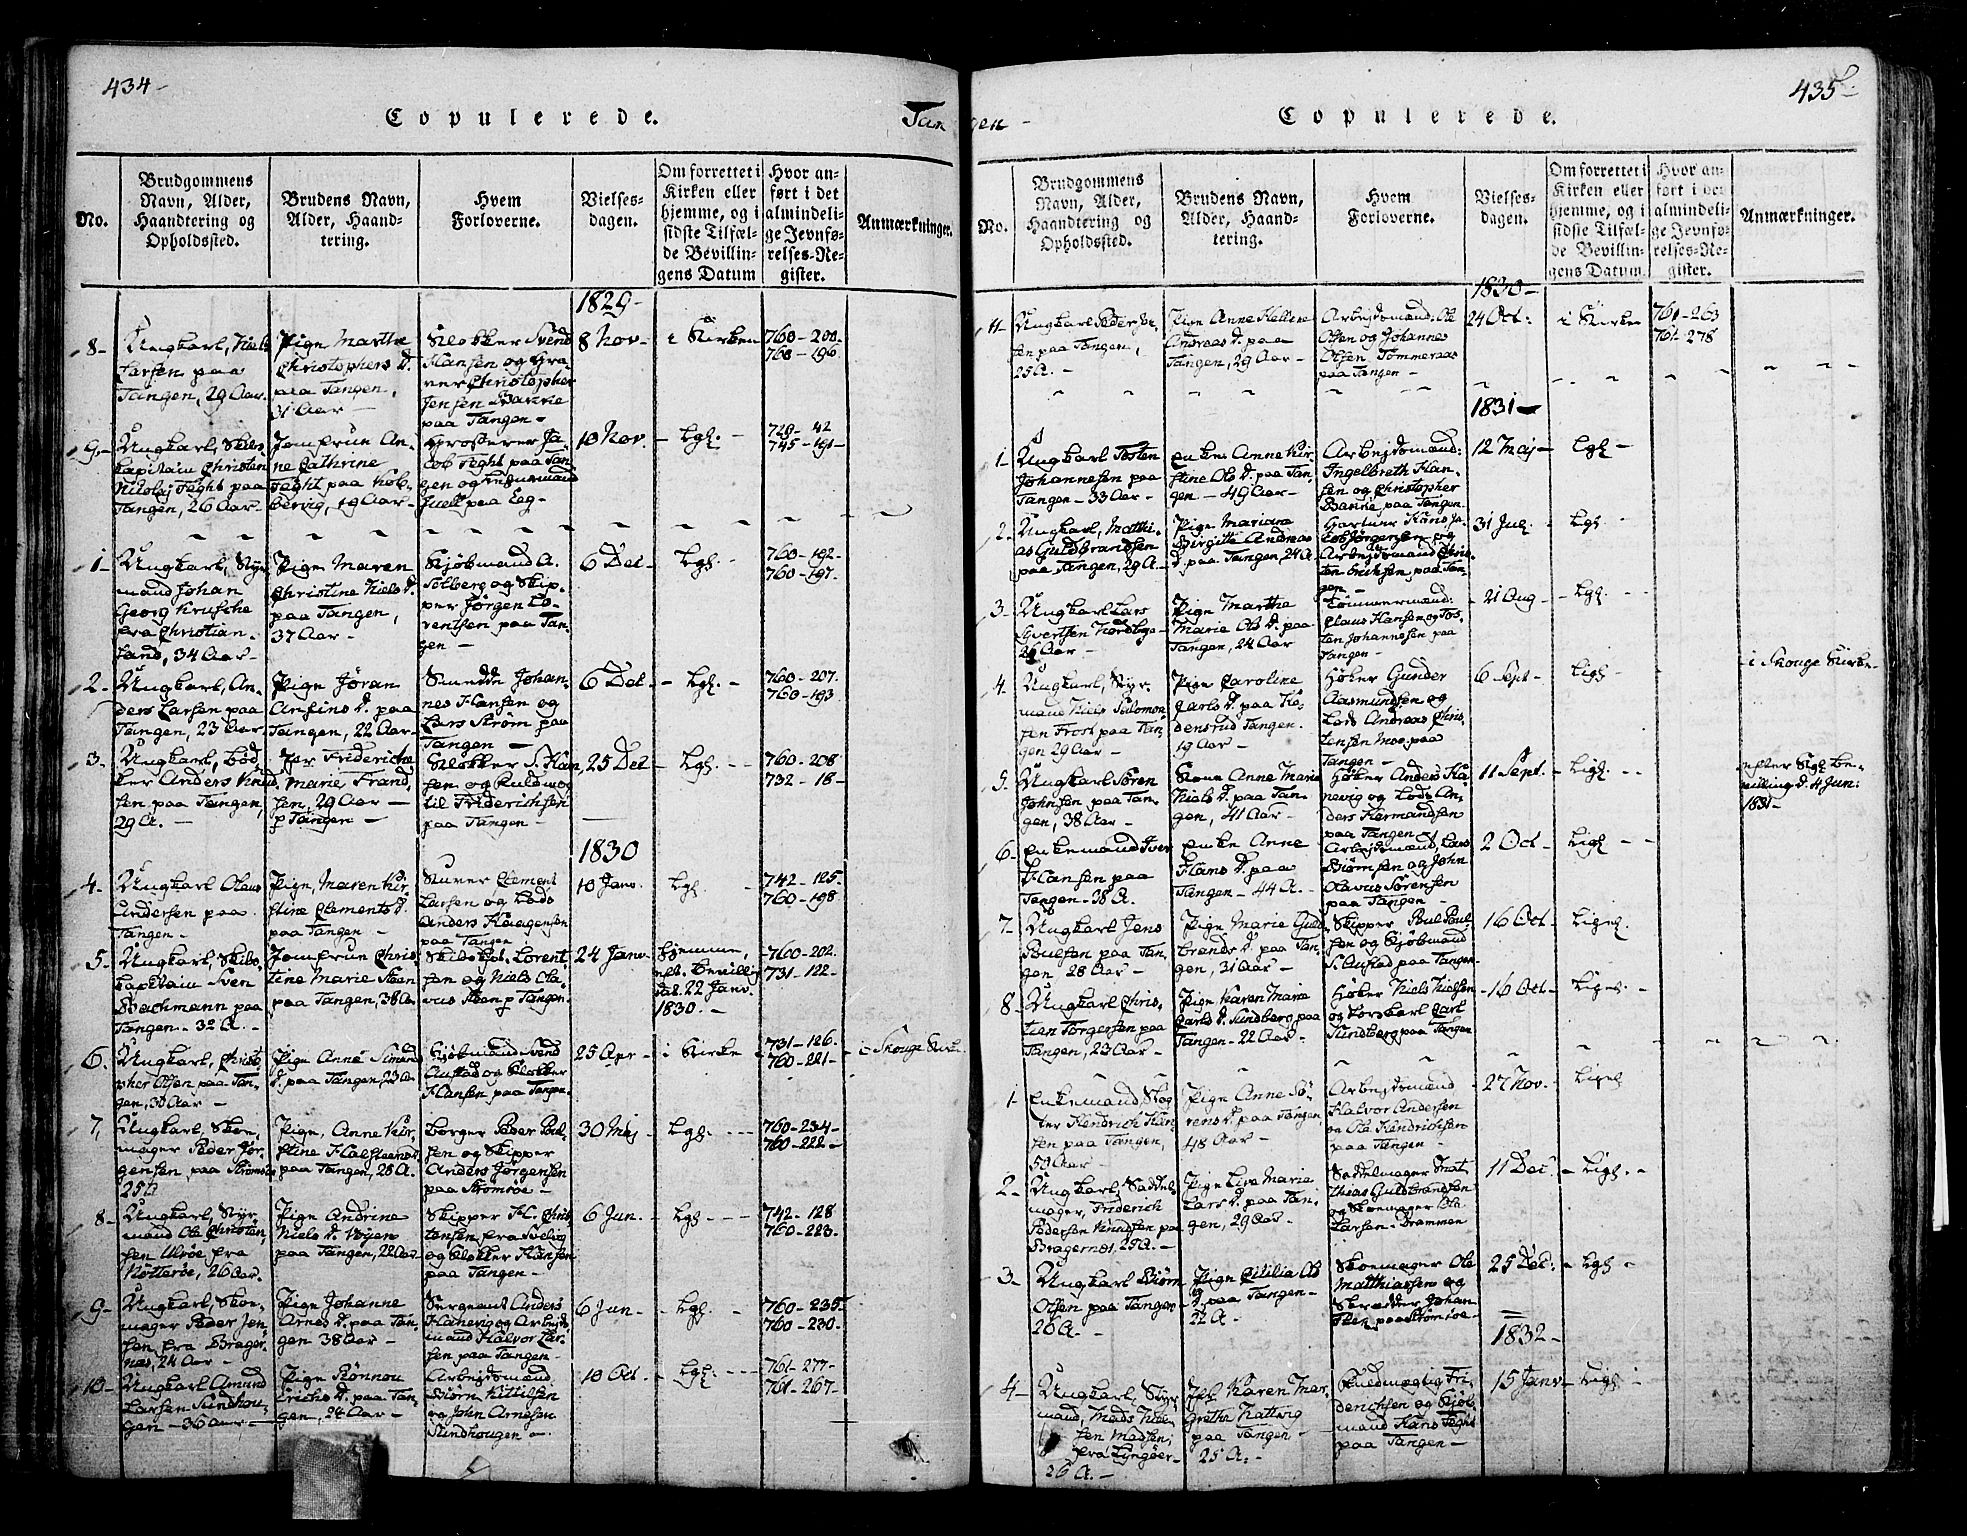 434-
Copulerede.
Tan
No.
Brudgommens Navn, Alder, Haandtering og Opholdssted.
Brudens Navn, Alder, Haandtering.
Hvem Forloverne.
Vielses-dagen.
Om forrettet i Kirken eller hjemme, og i sidste Tilfælde Bevillingens Datum
Hvor anført i det almindelige Jevnførelses-Register.
Anmærkninger.
1829-
8-
Ungkarl, Niels
Larsen paa
Tangen, 29 Aar.
Pige Marthe
Christophers D.
paa Tangen,
31 Aar-
Klokker Svend
Hansen og Gra-
ver Christopher
Jensen Bakke
paa Tangen-
8 Nov-
i Kirken
760-200-
760-196-
9-
Ungkarl, Skibs
Kapitain Christen
Nicolaj Teght paa
Tangen, 26 Aar-
Jomfrue An-
ne Cathrine
Teght paa Kob-
bervig, 19 Aar-
Grosserer Ja-
cob Teght paa Tan-
gen og
Juell paa Eeg-
10 Nov.
- Lgl. -
729-42
745-191-
1-
Ungkarl, Styr
mand Johan
Georg Krusche
fra Christian-
sand, 34 Aar-
Pige Maren
Christine Niels D.
paa Tangen,
37 Aar-
Kjøbmand A.
Solberg og Skip-
per Jørgen Lo-
rentsen paa Tan-
gen-
6 Dec-
Lgl. -
760-192-
760-197-
2-
Ungkarl, An-
ders Larsen paa
Tangen, 23 Aar
Pige Jøran
Anfins D. paa
Tangen, 22 Aar-
Smedde Johan-
nes Hansen og
Lars Strøm paa
Tangen-
6 Dec
- Lgl. -
760-207-
760-193-
3-
Ungkarl, Bød
ker Anders Knud
sen paa Tangen,
29 A. -
Marie Frand
sen, 29 Aar-
p Tangen-
Klokker S. Han
sen og
til Friderichsen
paa Tangen-
25 Dec
- Lgl. -
760-208-
732-18-
1830
4-
Ungkarl Olaus
Andersen paa
Tangen-
Pige, Maren Kir-
stine Clements D.
paa Tangen-
Clement
Larsen og Lods
Anders Haagensen
paa Tangen
10 Janv.
Lgl.
742-125-
760-198
5-
Ungkarl, Skibs-
Kapitain Sven
Bachmann paa
Tangen-32 A. -
Jomfrue Chris-
tine Marie Steen
paa Tangen, 38 A.
Lorent
sen og Niels Ola-
vus Steen p Tangen.
24 Janv-
hjemme,
eft. Bevillig
dat. 22 Janv.
1830.-
760-202-
731-122-
6.
Ungkarl, Christo
pher Olsen paa Tan-
gen, 30 Aar-
Pige Anne Simons
D. paa Tangen, 23 A.
Kjøbmand Svend
Austad og Klokker
Hansen paa Tangen-
25 Apr-
i Kirke-
731-126-
760-221-
i Skouge Kirke.
7,
Ungkarl, Skoe-
mager Peder Jør-
gensen, paa Strømsøe
25 A
Pige, Anne Kir-
stine
paa Tangen, 28 A.
Borger Peder Poul-
sen og Skipper
Anders Jørgensen
paa Strømsøe-
30 Maj
- Lgl. -
760-234-
760-222-
8-
Ungkarl, Styr
mand Ole Christen
sen Ulvøe fra
Nøtterøe, 26 Aar.
Pige Andrine
Niels D. Vøyen
paa Tangen, 22 Aar
Skipper H. C. Chris
tensen fra Svelvig
og Klokker Hansen
paa Tangen-
6 Jun.
- Lgl. -
742-128
760-223-
9-
Ungkarl, Skoe-
mager Peder Jen
sen fra Brager
næs, 24 Aar-
Pige Johanne
Arnes D. paa Tan-
gen 38 Aar-
Sergeant Anders
Hanevig og Arbejds
mand Halvor Lar-
sen paa Tangen-
6 Jun-
- Lgl. -
760-235-
760-230-
10-
Ungkarl Amund
Larsen Sundhou-
gen-36 Aar-
Pige Rønnou
Erichs D. paa Tan-
gen-, 24 Aar-
Arbejdsmænd,
Biørn Kittilsen
og John Arnesen
Sundhougen-
10 Oct.
- Lgl. -
761-277-
761-267-
435-
gen-
Copulerede.
No.
Brudgommens Navn, Alder, Haandtering og Opholdssted.
Brudens Navn, Alder, Haandtering.
Hvem Forloverne.
Vielses-dagen.
Om forrettet i Kirken eller hjemme, og i sidste Tilfælde Bevillingens Datum.
Hvor anført i det almindelige Jevnførelses-Register.
Anmærkninger.
1830-
11-
Ungkarl Peder
sen paa Tangen,
25 A. -
Pige Anne Hellene
Andreas D. paa
Tangen, 29 Aar-
Arbejdsmænd: Ole
Olsen og Johannes
Olsen Tommeraas
paa Tangen-
24 Oct:
i Kirken
761-263
761-278
1831-
1-
Ungkarl Tosten
Johannesen paa
Tangen-33 Aar-
Enke Anne Kir-
stine Ols D. paa Tan-
gen-49 Aar-
Arbejdsmænd:
Ingelbreth Han-
sen og Christopher
Bakke, paa Tangen
12 Maj-
Lgl-
2.
Ungkarl, Matthi-
as Guldbrandsen
paa Tangen, 29 A.-
Pige Mariane
Birgitte Andreas
D. paa Tangen, 24 A.
Hans Ja-
cob Jørgensen og
Arbejdsmand Chris-
ten Erichsen, paa Tan-
gen-
31 Jul.
Lgl.
3-
Ungkarl Lars
Syvertsen Nordbye
26 Aar-
Pige Marthe
Marie Ols D. paa
Tangen, 24 Aar
Tømmermænd:
Claus Hansen og Tos-
ten Johannesen paa
Tangen-
21 Aug-
Lgl. -
4.
Ungkarl, Styr-
mand Niels Salomon
sen Frost paa Tan
gen 29 Aar-
Pige Caroline
Carls D. paa Ko-
densrud Tangen.
19 Aar-
Høker Gunder
Aasmundsen og
Lods Andreas Chris-
tensen Moe paa
Tangen-
6 Sept-
Ligl-
- i Skouge Kirke-
5.
Ungkarl Søren
Johnsen paa Tan-
gen, 38 Aar-
Kone Anne Marie
Niels D. paa Tan-
gen, 41 Aar-
Høker Anders Ha-
nevig og Lods An-
ders Hermandsen
paa Tangen-
11 Sept.
- Ligl. -
- efter Kgl. Be-
villing d. 4 Jun:
1831-
6-
Enkemand Iver
Hansen paa
Tangen-38 A.
Enke Anne
Hans D. paa
Tangen-44 A.
Arbejdsmænd, Lars
Biørnsen og John
Olavus Sørensen
paa Tangen-
2 Oct-
Ligl -
7-
Ungkarl Jens
Poulsen paa Tan-
gen, 28 Aar-
Pige Marie Guld-
brands D. paa Tan-
gen, 31 Aar-
Skipper Poul Poul
sen og Kjøbmand
S. Austad paa Tangen-
16 Oct
- Ligel.
8-
Ungkarl Chris-
tien Torgersen paa
Tangen, 23 Aar-
Pige Karen Marie
Carls D. Sundberg paa
Tangen-22 Aar-
Høker Niels Nielsen
og Lovskarl Carl
Sundberg paa Tangen
16 Oct-
Ligel.
1-
Enkemand, Skog
ter Hendrich Han
sen paa Tangen,
50 Aar-
Pige Anne Sø-
rens D. paa Tangen,
48 Aar-
Arbejdsmænd
Halvor Andersen
og Ole Hendrichsen
paa Tangen-
27 Nov.
- Ligel
2-
Ungkarl, Saddel
mager, Friderich
Pedersen Knudsen paa
Bragernæs, 25 A.-
Pige Live Marie
Lars D. paa Tan-
gen, 29 Aar-
Saddelmager Mat-
thias Guldbrandsen
og Skoemager Ole
Larsen-Drammen-
11 Dec
- Ligl. -
3-
Ungkarl Biørn
Olsen paa Tangen
26 A. -
Pige Cicilia Ols
D. paa Tangen-
22 A.
Skoemager Ole
Matthiassen og
Skrædder Johan
paa Strømsøe-
25 Dec:
- Lgl -
1832-
4-
Ungkarl, Styr
mand, Mads
sen Madsen,
fra Lyngøer-
26 A.-
Jfr Karen Mar-
grethe Hattvig
paa Tangen-
25 A. -
Skudsmægleg Fri-
derichsen og Kjøb-
mand Hans Teght
paa Tangen-
15 Janv-
Ligl -